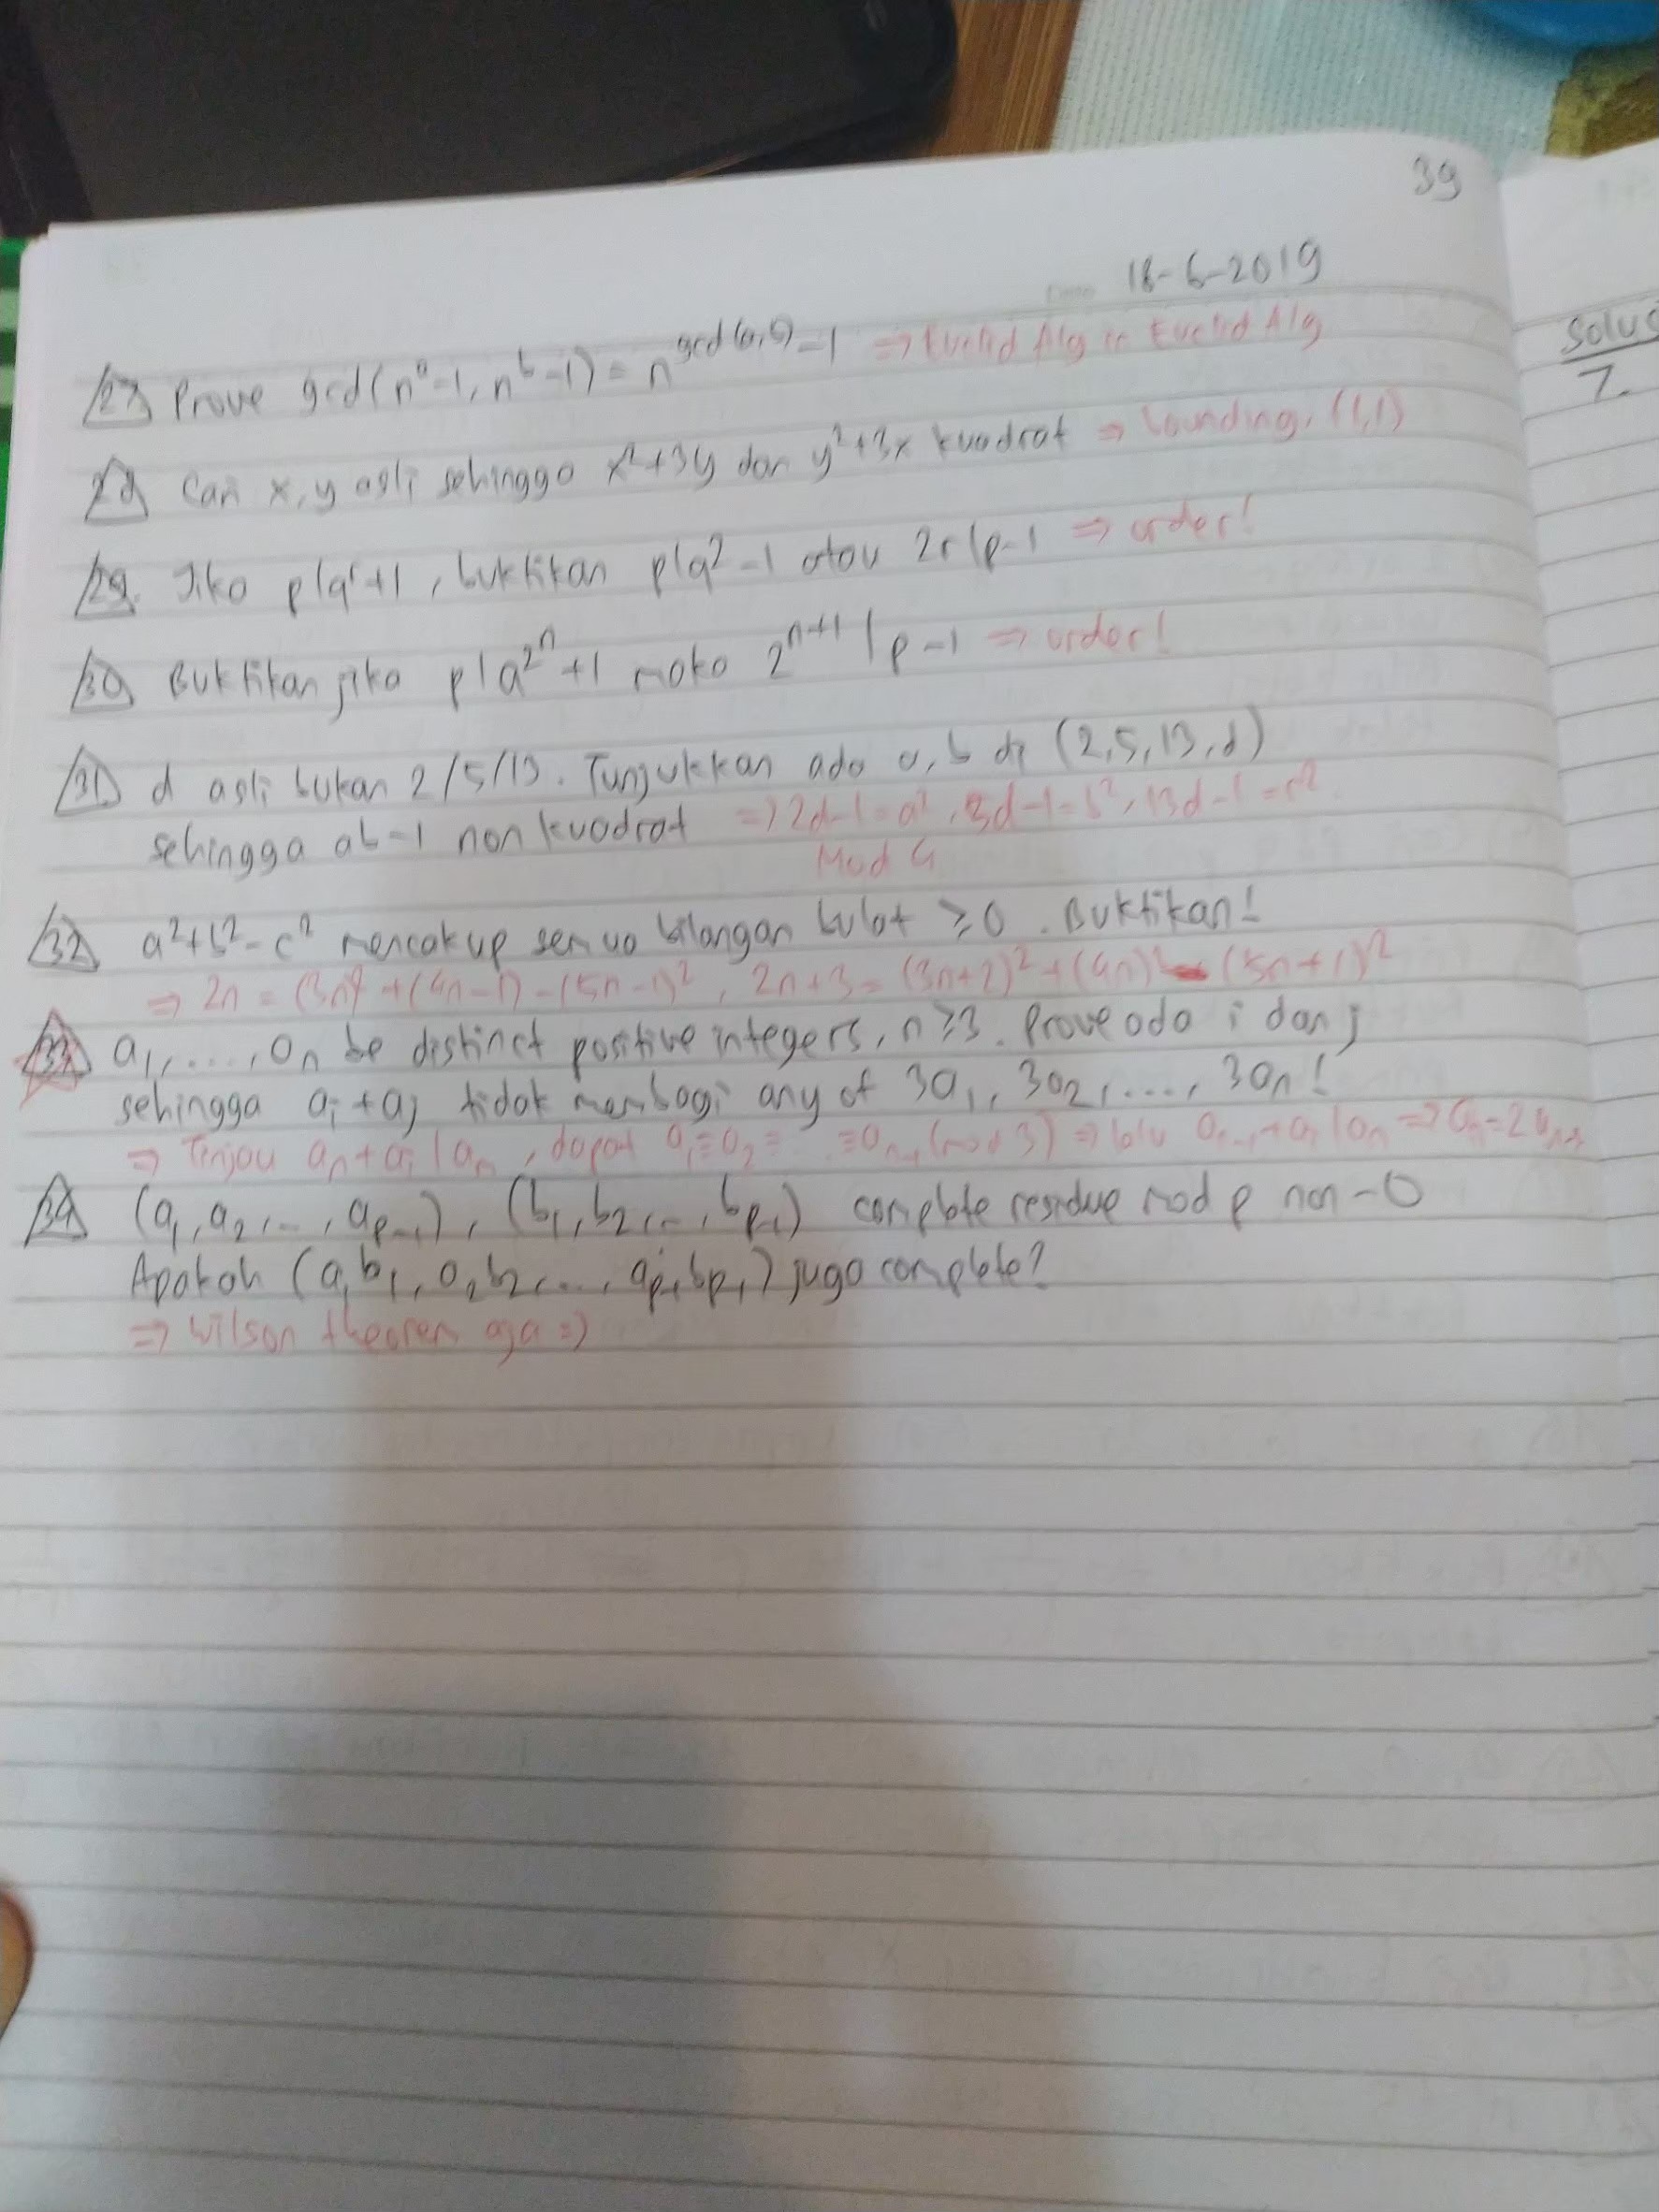 39
18-6-2019
Solus
7.
27 Prove gcd(n^a-1, n^b-1) = n^gcd(a,b)-1 => Euclid Alg in Euclid Alg
28 Cari x, y asli sehingga x²+3y dan y²+3x kuadrat => bounding, (1,1)
29. Jika p|q^r+1, buktikan p|q²-1 atau 2r|p-1 => order!
30 Buktikan jika p|a^2^n+1 maka 2^n+1|p-1 => order!
31 d asli bukan 2/5/13. Tunjukkan ada a, b di (2,5,13,d)
sehingga ab-1 non kuadrat => 2d-1=a², 5d-1=b², 13d-1=c².
Mod 4
32 a²+b²-c² mencakup semua bilangan bulat ≥0. Buktikan!
=> 2n = (3n)²+(4n-1)²-(5n-1)², 2n+3 = (3n+2)²+(4n)²-(5n+1)²
33 a₁,...,aₙ be distinct positive integers, n≥3. Prove ada i dan j
sehingga aᵢ+aⱼ tidak membagi any of 3a₁, 3a₂,..., 3aₙ!
=> Tinjau aₙ+aᵢ|aₙ, dapat a₁≡a₂≡...≡aₙ₋₁ (mod 3) => lalu aₙ₋₁+aᵢ|aₙ => aₙ=2aₙ₋₁
34 (a₁,a₂,...,aₚ₋₁), (b₁,b₂,...,bₚ₋₁) complete residue mod p non-0
Apakah (a₁b₁, a₂b₂,..., aₚ₋₁bₚ₋₁) juga complete?
=> Wilson theorem aja =)